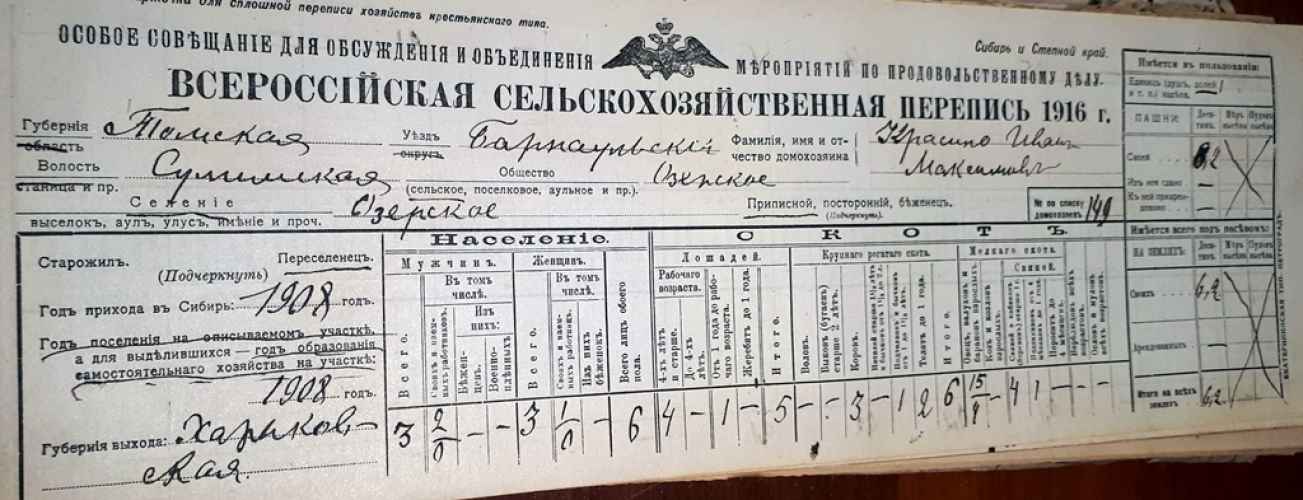 для сплошной переписи хозяйствъ крестьянскаго типа.
ОСОБОЕ СОВѢЩАНІЕ ДЛЯ ОБСУЖДЕНІЯ И ОБЪЕДИНЕНІЯ МѢРОПРІЯТІЙ ПО ПРОДОВОЛЬСТВЕННОМУ ДѢЛУ.
Сибирь и Степной край.
ВСЕРОССІЙСКАЯ СЕЛЬСКОХОЗЯЙСТВЕННАЯ ПЕРЕПИСЬ 1916 г.
Губернія Томская Уѣздъ Барнаульскій Фамилія, имя и от- Красино Иванъ
область округъ чество домохозяина Максимовъ
Волость Общество Озерское
станица и пр. (сельское, поселковое, аульное и пр.).
Селеніе Озерское Приписной, посторонній, бѣженецъ. № по списку 149
выселокъ, аулъ, улусъ, имѣніе и проч. (Подчеркнуть). домохозяевъ
Старожилъ. Переселенецъ.
(Подчеркнуть)
Годъ прихода въ Сибирь: 1908 годъ.
Годъ поселенія на описываемомъ участкѣ,
а для выдѣлившихся — годъ образованія
самостоятельнаго хозяйства на участкѣ:
1908 годъ.
Губернія выхода: Харьков-
ская
Населеніе.
Мужчинъ. Женщинъ.
Въ томъ числѣ. Въ томъ числѣ.
Изъ нихъ:
Всего.
Своихъ и наем-
ныхъ работниковъ.
Бѣжен-
цевъ.
Военно-
плѣнныхъ
Всего.
Своихъ и наем-
ныхъ работниц.
Изъ нихъ
бѣженокъ.
Всего лицъ обоего
пола.
СКОТЪ.
Лошадей. Крупнаго рогатаго скота. Мелкаго скота.
Рабочаго
возраста.
4-хъ лѣтъ
и старше.
До 4-хъ
лѣтъ.
Отъ 1 года до рабо-
чаго возраста.
Жеребятъ до 1 года.
Итого.
Воловъ.
Быковъ (бугаевъ)
старше 2 лѣтъ.
Коровъ.
Телятъ до 1 года.
Итого.
Свиней.
3 2/0 - - 3 1/0 - 6 4 - 1 - 5 - - 3 - 1 2 6 15/9 - 4 1 - - -
Имѣется въ пользованіи:
ПАШНИ
Своей 8,2
Изъ нея сдано —
Имѣется всего подъ посѣвомъ:
НА ЗЕМЛЯХЪ
Своихъ 6,2
Арендованныхъ —
Итого на всѣхъ
земляхъ 6,2